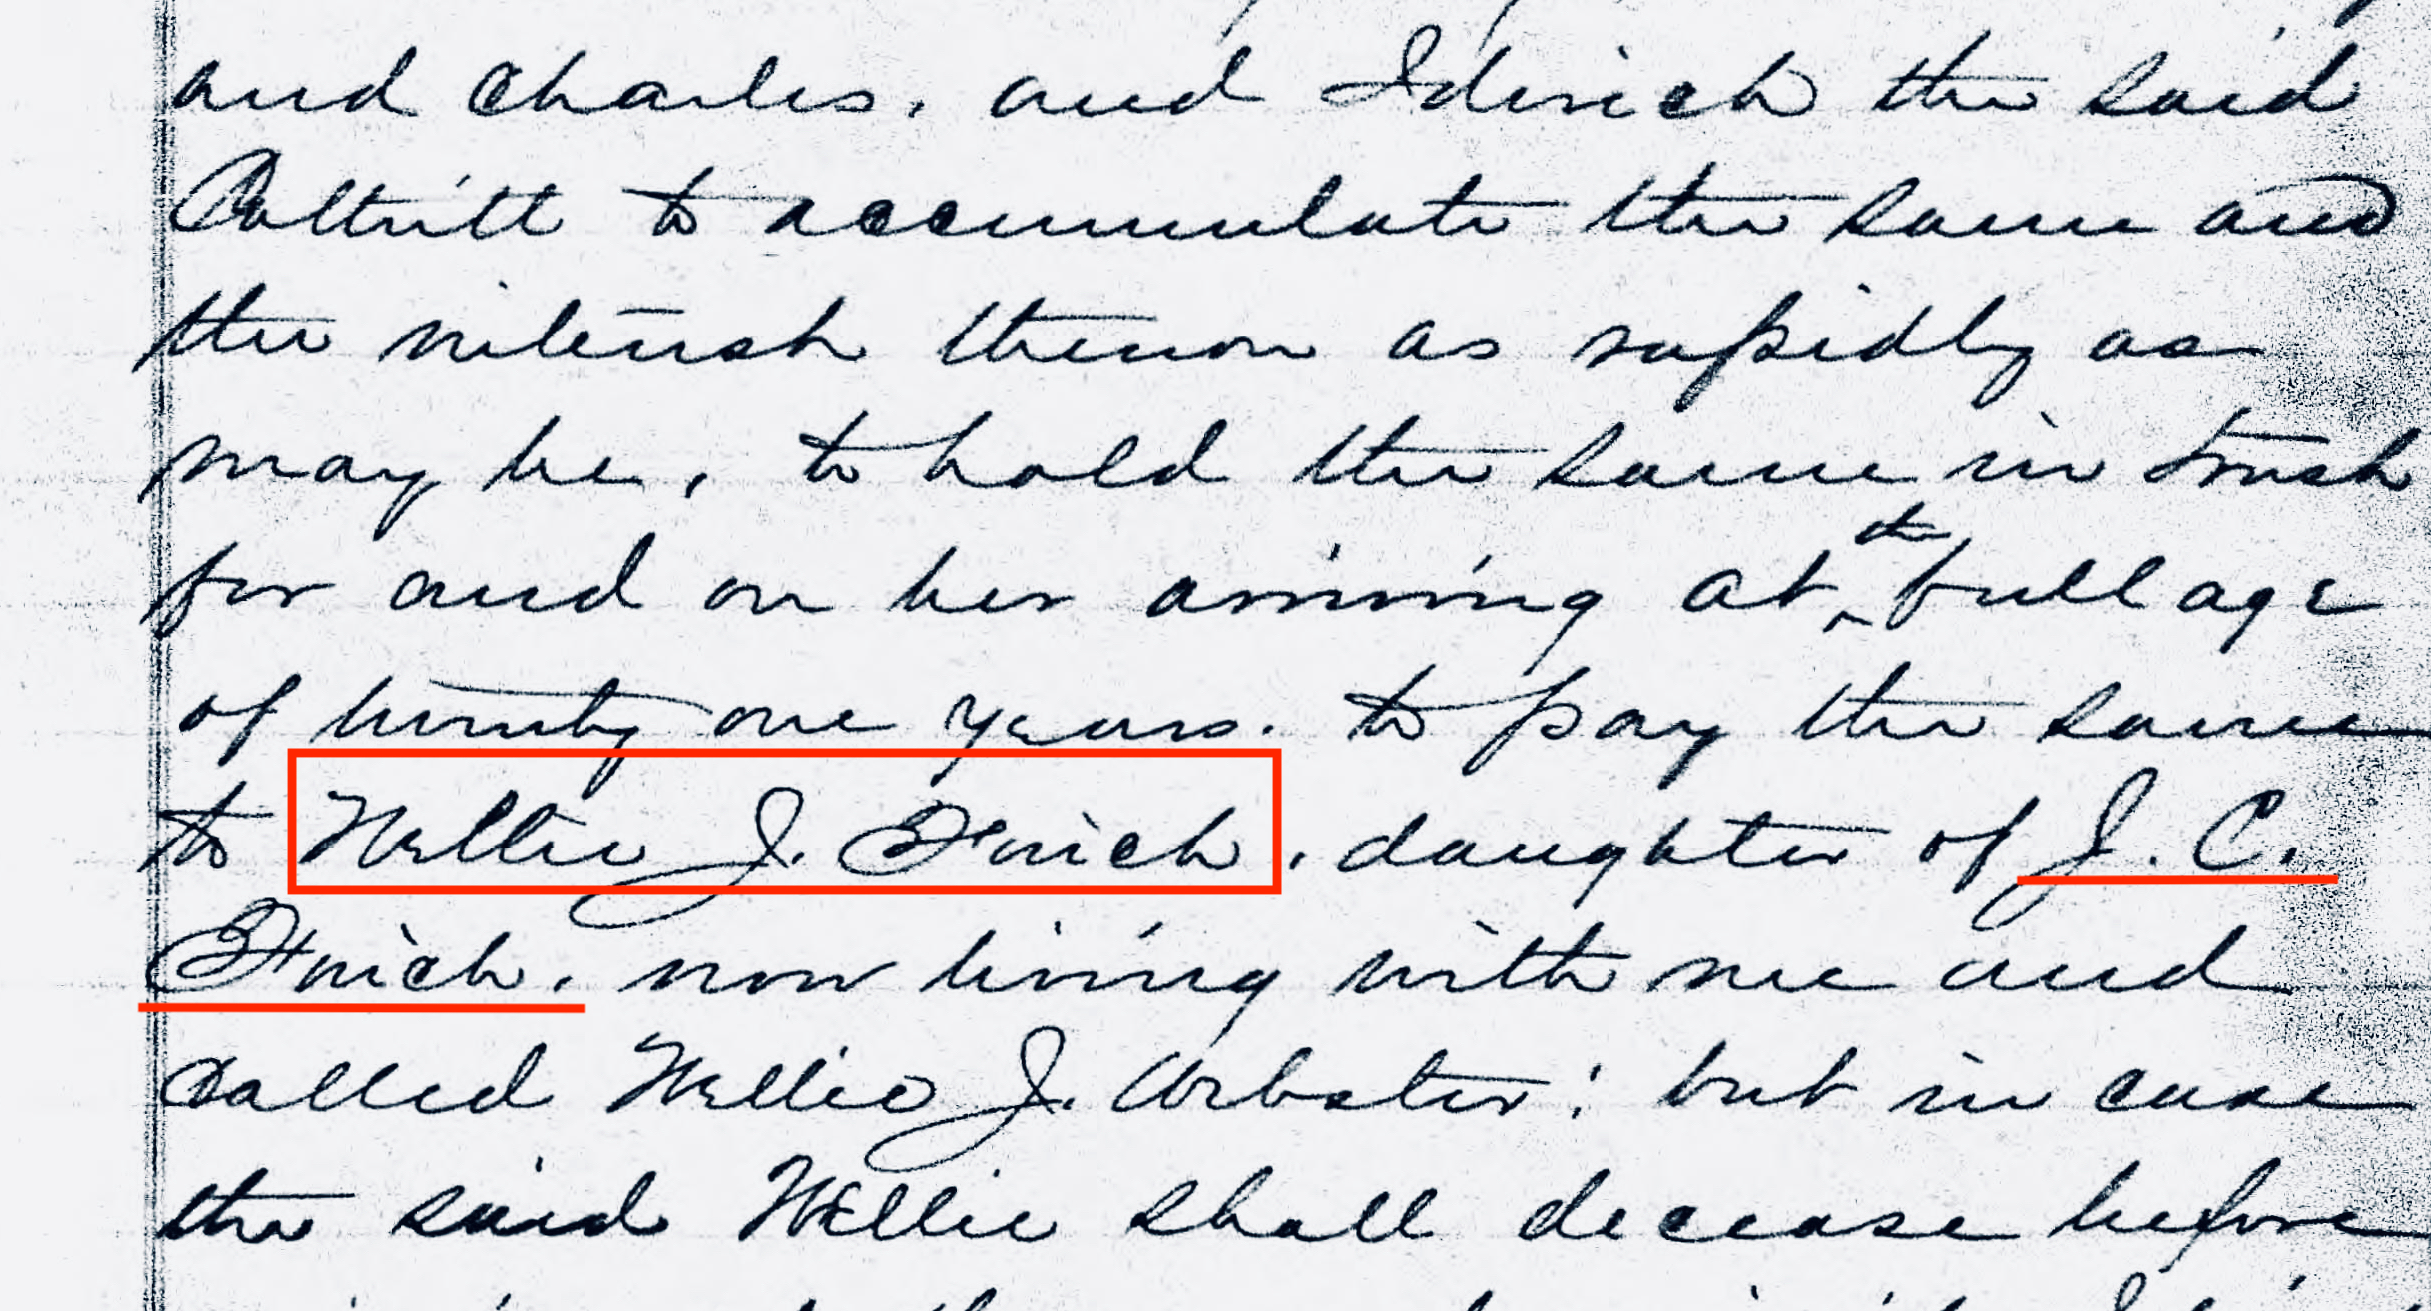 and Charles, and I direct the said
Pottritt to accumulate the same and
the interest thereon as rapidly as
may be, to hold the same in trust
for and on her arriving at the full age
of twenty one years. to pay the same
to Nellie J. Finch, daughter of J. C.
Finch, now living with me and
called Nellie J. Webster; but in case
the said Nellie shall decease before